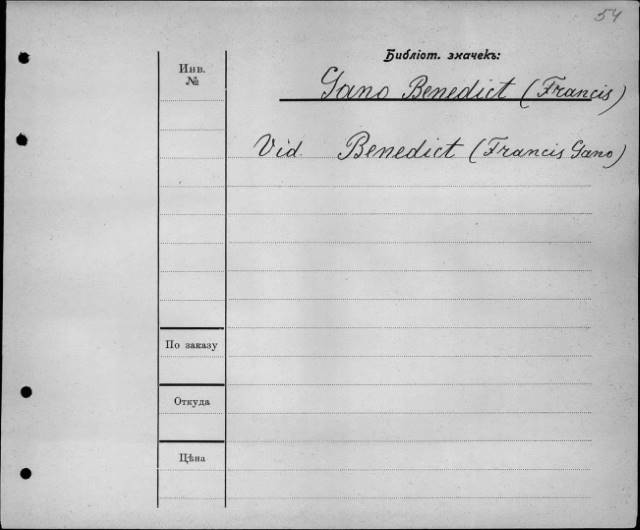 54
Библіот. значекъ:
Инв.
№
Gano Benedict (Francis)
Vid. Benedict (Francis Gano)
По заказу
Откуда
Цѣна